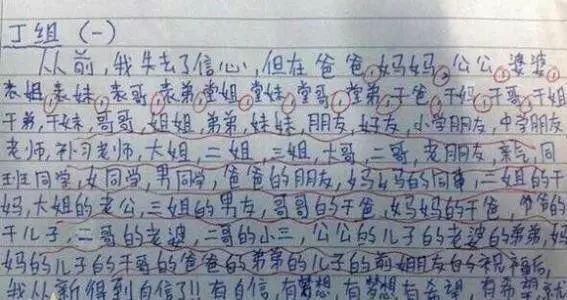 丁组(一)
从前,我失去了信心,但在爸爸,妈妈,公公,婆婆,
表姐,表妹,表哥,表弟,堂姐,堂妹,堂哥,堂弟,干爸,干妈,干哥,干姐
干弟,干妹,哥哥,姐姐,弟弟,妹妹,朋友,好友,小学朋友,中学朋友
老师,补习老师,大姐,二姐,三姐,大哥,二哥,老朋友,亲戚,同
班同学,女同学,男同学,爸爸的朋友,妈妈的同事,二姐的干
妈,大姐的老公,三姐的男友,哥哥的干爸,妈妈的干爸,爷爷的
干儿子,二哥的老婆,二哥的小三,公公的儿子的老婆的弟弟,妈
妈的儿子的干哥的爸爸的弟弟的儿子的前姐朋友的祝福后,
我从新得到自信了!!有自信,有梦想,有梦想有希望,有希望就